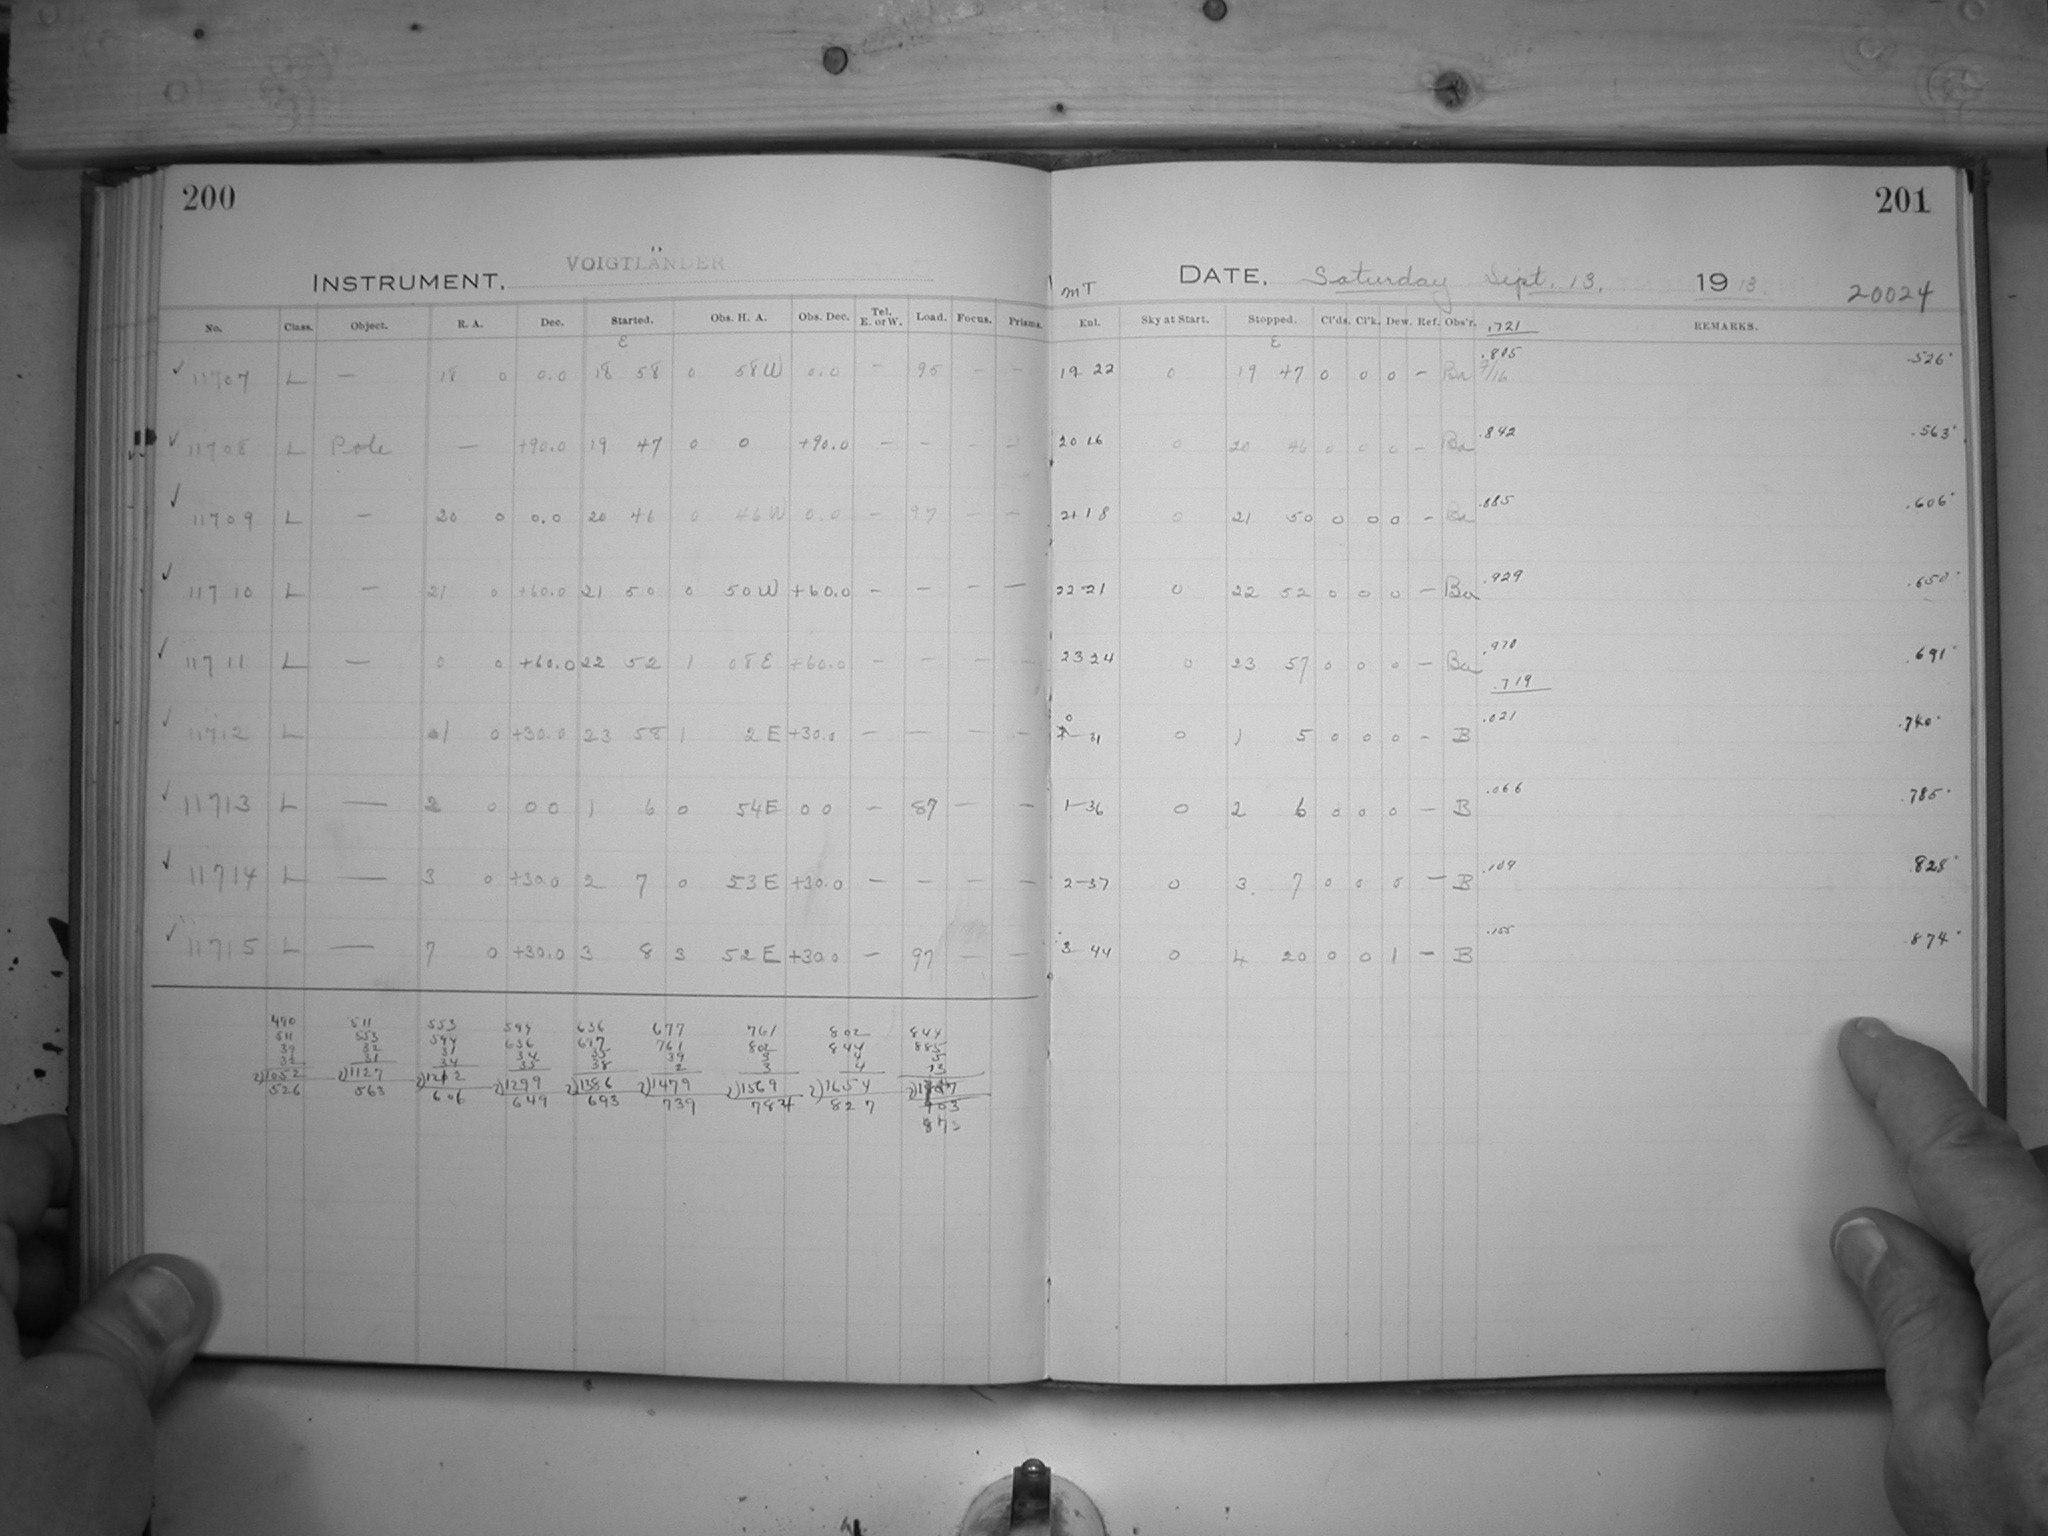 200
201
VOIGTLÄNDER
INSTRUMENT.
DATE. Saturday Sept. 13. 1913.
20024
MT
No. Class. Object. R. A. Dec. Started. Obs. H. A. Obs. Dec. Tel. E. or W. Load. Focus. Prisms. Exl. Sky at Start. Stopped. Cl'ds. Cl'k. Dew. Ref. Obs'r. .721 REMARKS.
E E
✓ 11707 L — 18 0 0.0 18 58 0 58W 0.0 — 95 — — 19 22 0 19 47 0 0 0 — Ba .805 7/16 .526
✓ 11708 L Pole — +90.0 19 47 0 0 +90.0 — — — — 20 16 0 20 46 0 0 0 — Ba .842 .563
✓ 11709 L — 20 0 0.0 20 46 0 46W 0.0 — 97 — — 21 18 0 21 50 0 0 0 — Ba .885 .606
✓ 11710 L — 21 0 +60.0 21 50 0 50W +60.0 — — — — 22-21 0 22 52 0 0 0 — Ba .929 .650
✓ 11711 L — 0 0 +60.0 22 52 1 08E +60.0 — — — — 23 24 0 23 57 0 0 0 — Ba .970 .691
.719
✓ 11712 L 1 0 +30.0 23 58 1 2E +30.0 — — — — 0-31 0 1 5 0 0 0 — B .021 .740
✓ 11713 L — 2 0 0 0 1 6 0 54E 0 0 — 87 — — 1-36 0 2 6 0 0 0 — B .066 .785
✓ 11714 L — 3 0 +30.0 2 7 0 53E +30.0 — — — — 2-37 0 3 7 0 0 0 — B .109 .828
✓ 11715 L — 7 0 +30.0 3 8 3 52E +30.0 — 97 — — 3 44 0 4 20 0 0 1 — B .155 .874
490 511 553 594 636 677 761 802 844
511 553 594 636 677 761 802 844 885
39 32 31 34 35 39 3 4
32 31 34 35 38 2 3 4
2)1052 2)1127 2)1212 2)1299 2)1386 2)1479 2)1569 2)1654
526 563 606 649 693 739 784 827